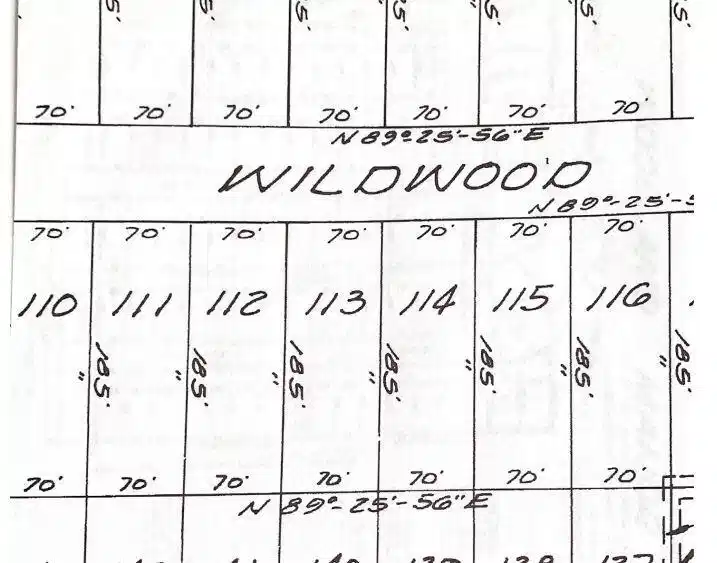 70' 70' 70' 70' 70' 70' 70'
N 89°-25'-56" E
WILDWOOD
N 89°-25'-5
70' 70' 70' 70' 70' 70' 70'
110 111 112 113 114 115 116
185' 185' 185' 185' 185' 185' 185'
" " " " " " "
70' 70' 70' 70' 70' 70' 70'
N 89°-25'-56" E